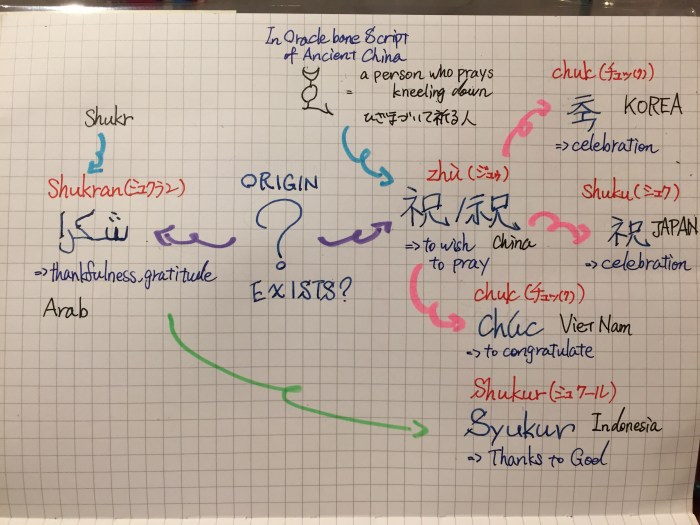 In Oracle bone Script
of Ancient China
= a person who prays
kneeling down
ひざまづいて祈る人
chuk (チュッ(ク))
축 KOREA
⇒ celebration
Shukr
Shukran (シュクラン)
شكرا
⇒ thankfulness, gratitude
Arab
ORIGIN
?
EXISTS?
zhù (ジュゥ)
祝/祝
⇒ to wish China
to pray
Shuku (シュク)
祝 JAPAN
⇒ celebration
chuc (チュッ(ク))
Chúc Viet Nam
⇒ to congratulate
Shukur (シュクール)
Syukur Indonesia
⇒ Thanks to God